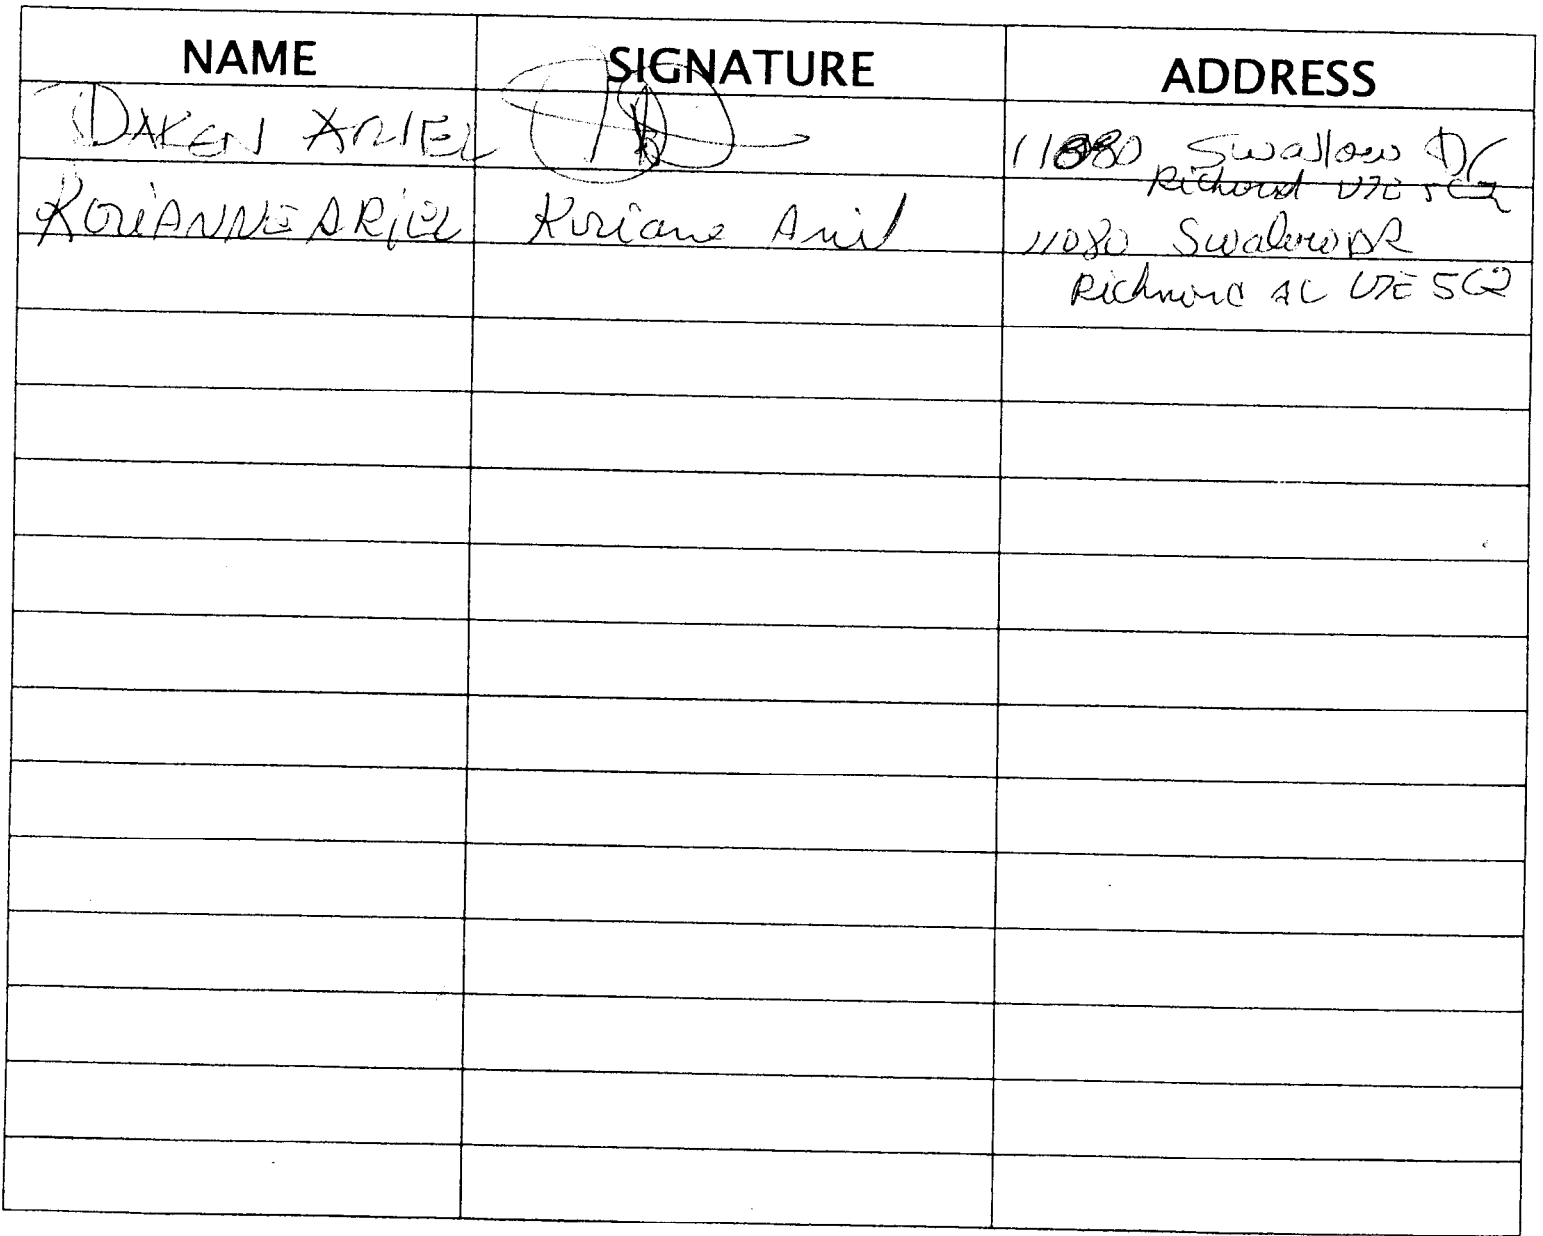 NAME SIGNATURE ADDRESS
DAKEN ARIEL 11080 Swallow Dr
Richmond V7E 5C2
KORIANNE ARIEL Koriane Ariel 11080 Swallow DR
Richmond BC V7E 5C2